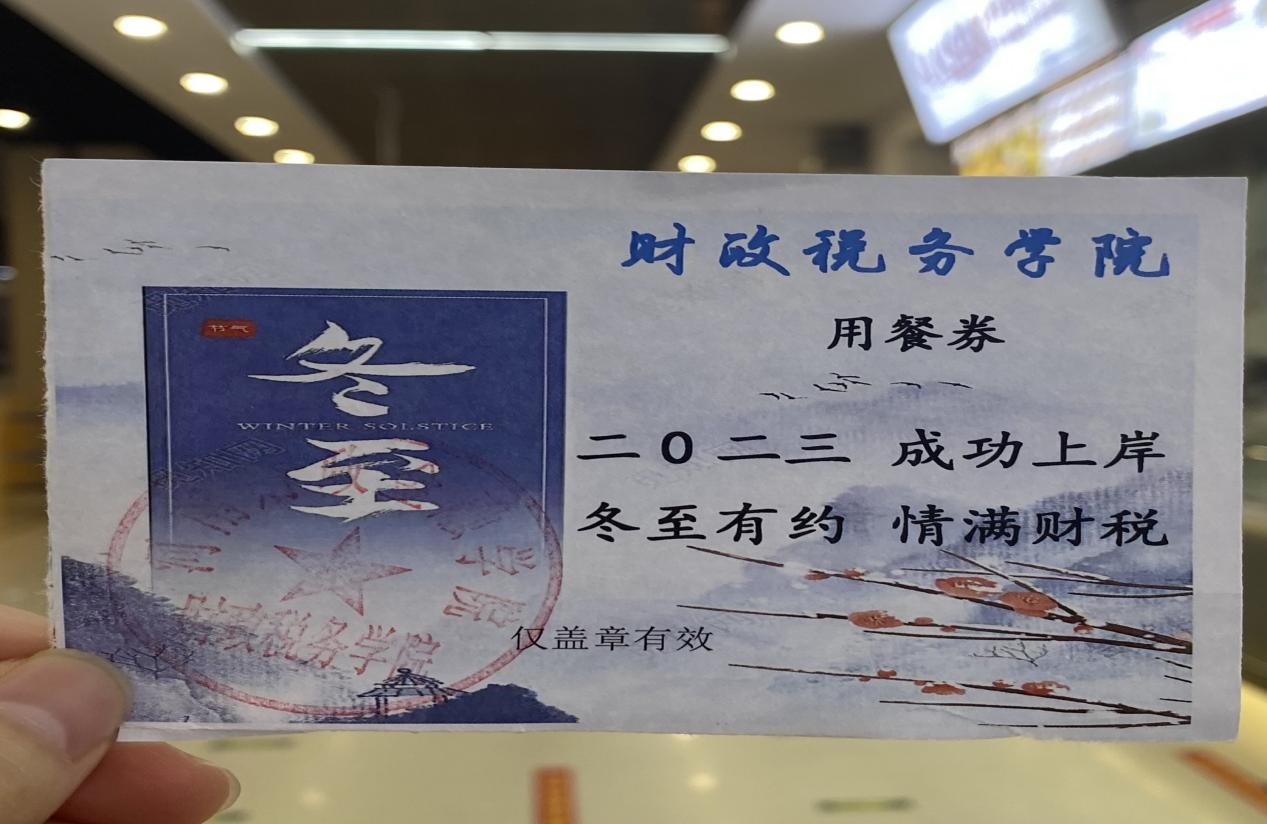 财政税务学院
用餐券
节气
冬至
WINTER SOLSTICE
二0二三 成功上岸
冬至有约 情满财税
仅盖章有效
财政税务学院